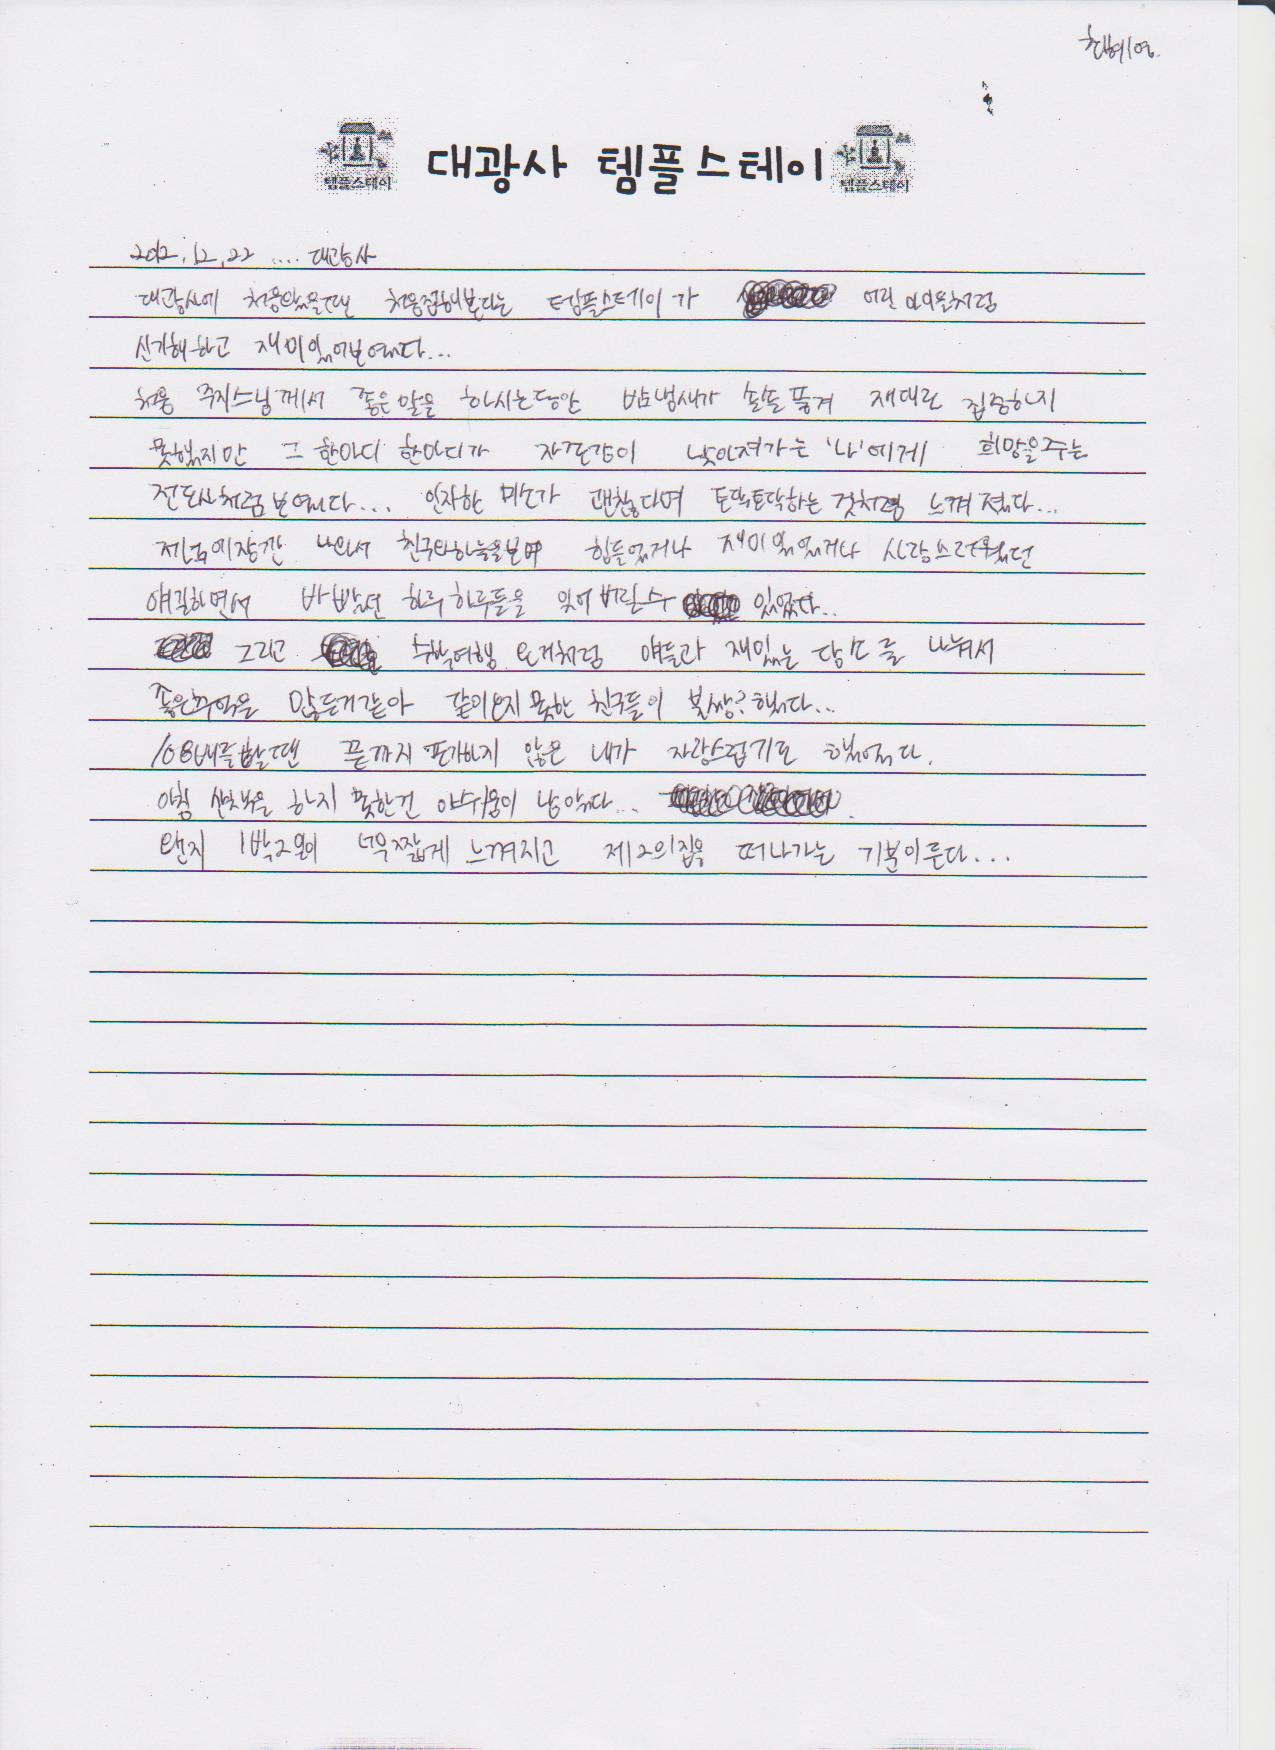 템플스테이
대광사 템플스테이
템플스테이
2012.12.22 .... 대광사
대광사에 처음왔을때 처음접해본다는 템플스테이가 어린 아이들처럼
신기해하고 재미있어보였다...
처음 주지스님께서 좋은 말을 하시는동안 밤냄새가 솔솔 풍겨 재대로 집중하지
못했지만 그 한마디 한마디가 자존감이 낮아져가는 '나'에게 희망을주는
전도사처럼 보였다... 인자한 미소가 괜찮다며 토닥토닥하는 것처럼 느껴졌다...
나와서 친구와하늘을보며 힘들었거나 재미있었거나 사랑스러웠던
얘길하면서 바빴던 하루하루들을 잊어버릴수 있었다..
그리고 수학여행 온거처럼 얘들과 재밌는 담소를 나눠서
좋은추억을 만든거같아 같이오지 못한 친구들이 불쌍?했다...
108배를할땐 끝까지 포기하지 않은 내가 자랑스럽기도 했었다.
아침 산보을 하지 못한건 아쉬움이 남았다...
왠지 1박2일이 너무짧게 느껴지고 제2의집을 떠나가는 기분이든다...